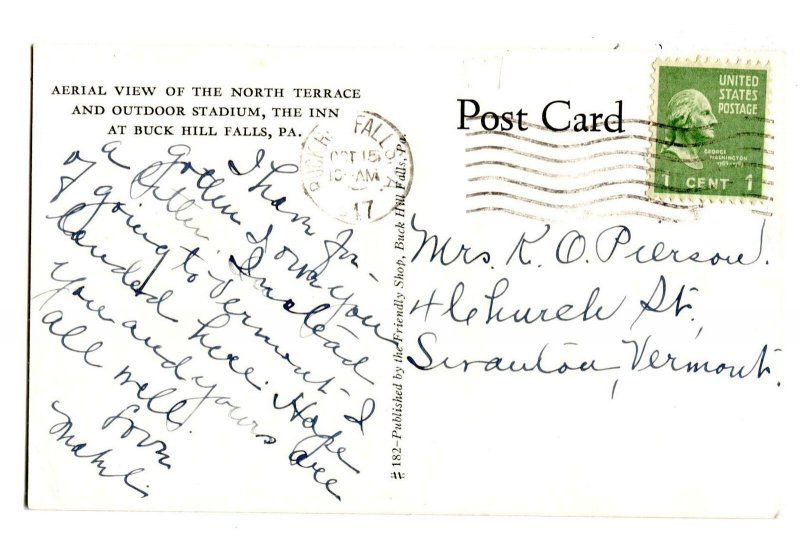 AERIAL VIEW OF THE NORTH TERRACE
AND OUTDOOR STADIUM, THE INN
AT BUCK HILL FALLS, PA.
I have for-
gotten I own you
a letter. Instead
of going to Vermont I
landed here. Hope
you and yours are
all well.
Love
BUCK HILL FALLS, PA.
OCT 15
10-AM
47
# 182-Published by the Friendly Shop, Buck Hill Falls, Pa.
Post Card
UNITED
STATES
POSTAGE
GEORGE
WASHINGTON
1 CENT 1
Mrs. K. O. Pierson.
4 Church St,
Swanton, Vermont.